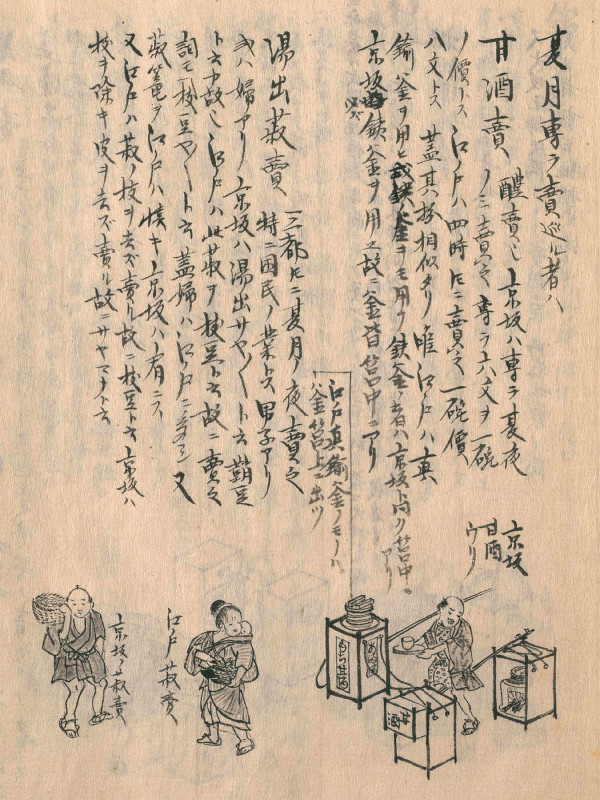 夏月専ラ賣巡ル者ハ
甘酒賣 醴賣也 京坂ハ専ラ夏夜
ノミ賣之 専ラ六文ヲ一碗
ノ價トス 江戸ハ四時トモニ賣之 一碗價
八文トス 蓋其扮相似タリ 唯江戸ハ真
鍮釜ヲ用ヒ或鉄釜ヲモ用フ 鉄釜ノ者ハ京坂ト同ク筥中ニアリ
京坂必ズ鉄釜ヲ用フ 故ニ釜皆筥中ニアリ
江戸真鍮釜ノモノハ
釜筥上ニ出ツ
湯出菽賣 三都トモニ夏月ノ夜賣之
特ニ困民ノ業トス 男子アリ
或ハ婦アリ 京坂ハ湯出サヤ〱ト云 鞘豆
ト云也 故也 江戸ハ此菽ヲ枝豆ト云故ニ賣之
詞モ枝豆ヤ〱ト云 蓋婦ハ江戸ニ多シ 又
菽篭ヲ江戸ハ懐キ京坂ハ肩ニス
又江戸ハ菽ノ枝ヲ去ズ賣ル故ニ枝豆ト云 京坂ハ
枝ヲ除キ皮ヲ去ズ賣ル故ニサヤマメト云
京坂
甘酒
ウリ
あまさけ
甘酒
江戸菽賣
京坂ノ菽賣